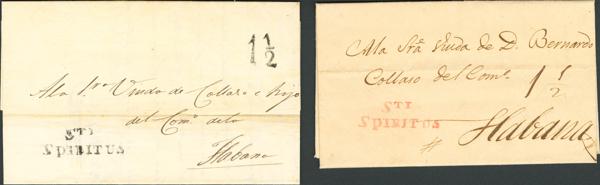 1 1/2
A la Sra Viuda de Collaso e hijo
del Como de la
STI
SPIRITUS
Habana
A la Sra Viuda de D. Bernardo
Collaso del Como
1 1/2
STI
SPIRITUS
Habana